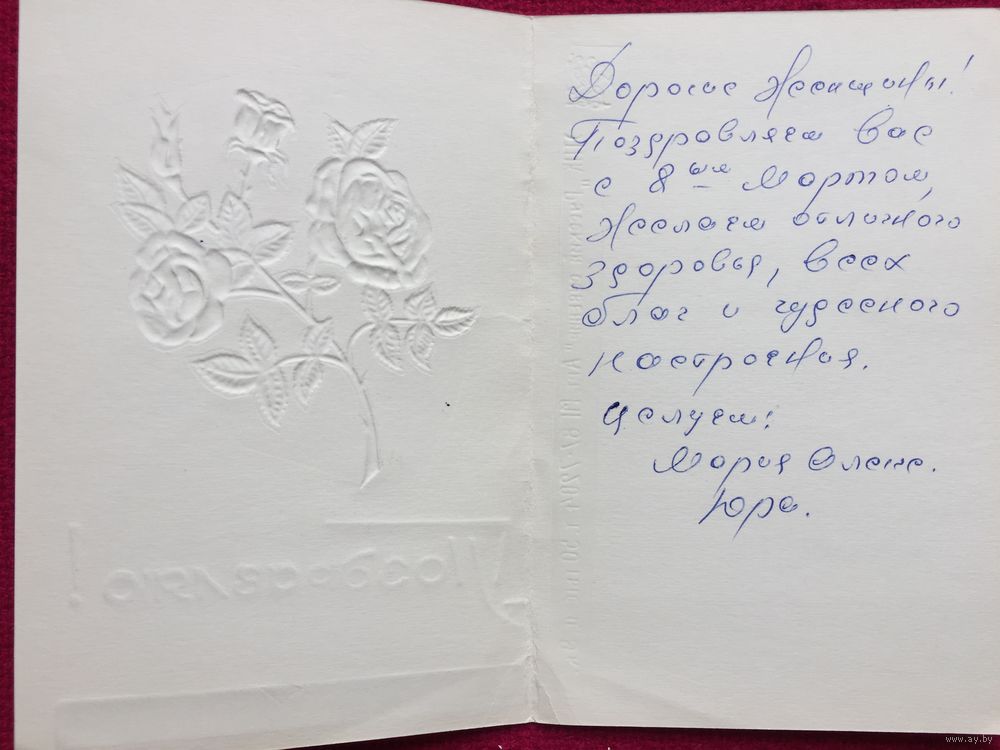 Дорогие Женщины!
Поздровляем вас
с 8ым Мартом,
Желаем отличного
здоровья, всех
благ и чудесного
настроения.
Целуем:
Мария Олена.
Юра.
Поздравляю!
www.ay.by